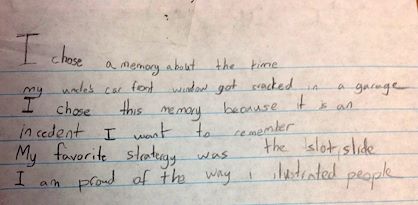 I chose a memory about the time
my uncle's car front window got cracked in a garage
I chose this memory because it is an
incedent I want to remember
My favorite stratergy was the slot slide
I am proud of the way i ilustrated people